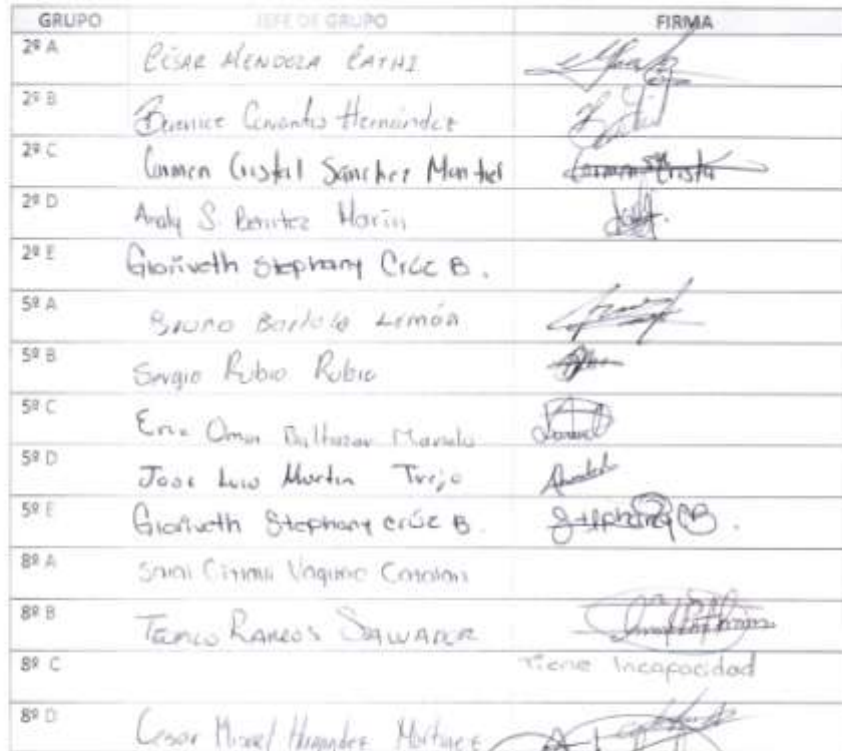 GRUPO JEFE DE GRUPO FIRMA
2º A CÉSAR MENDOZA
2º B Berenice Cervantes Hernández
2º C Carmen Cristal Sánchez Montiel Carmen Cristal
2º D Araly S. Benitez Marin
2º E Gioriveth Stephany Crúz B.
5º A BRUNO Bartolo LEMÓN
5º B Sergio Rubio Rubio
5º C Eric Omar Balthazar
5º D Jose Luis Martin Trejo
5º E Gioriveth Stephany Crúz B. Stephany CB.
8º A
8º B RAMOS SALVADOR
8º C Tiene Incapacidad
8º D Cesar Miguel Hernandez Martinez